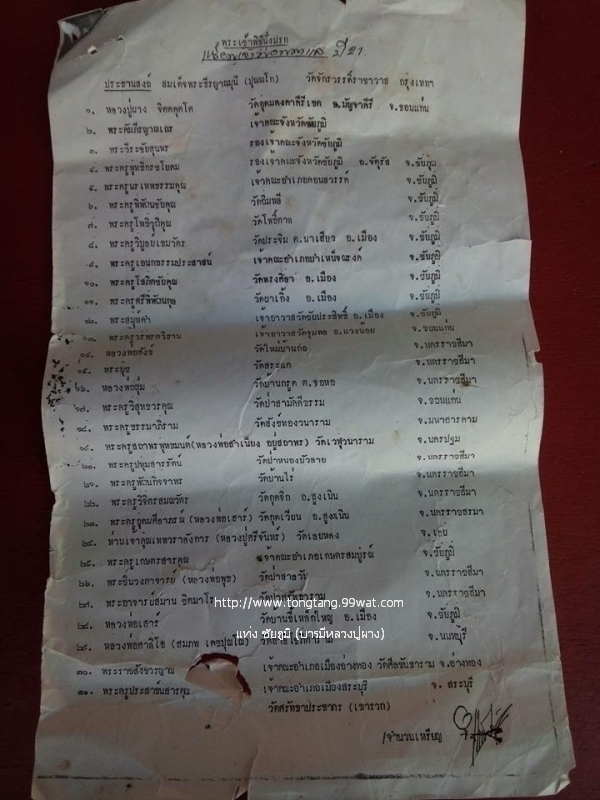 พระเจ้าพิธีนั่งปรก
ปี 21
ประธานสงฆ์ สมเด็จพระธีรญาณมุนี (ปุณณโก) วัดจักรวรรดิ์ราชาวาส กรุงเทพฯ
๑. หลวงปู่ผาง จิตตคุตโต วัดอุดมคงคาคีรีเขต อ.มัญจาคีรี จ.ขอนแก่น
๒. พระคัมภีรญาณเถร เจ้าคณะจังหวัดชัยภูมิ
๓. พระวีระชัยสุนทร รองเจ้าคณะจังหวัดชัยภูมิ
๔. รองเจ้าคณะจังหวัดชัยภูมิ อ.จัตุรัส จ.ชัยภูมิ
๕. พระครูนรเทพธรรมคุณ เจ้าคณะอำเภอคอนสวรรค์ จ.ชัยภูมิ
๖. พระครูพิพัฒนชัยคุณ จ.ชัยภูมิ
๗. พระครูโพธิวุฒิคุณ วัดโพธิ์ตาล จ.ชัยภูมิ
๘. พระครูวิบูลย์เขมวัตร วัดประจิม ต.นาเสียว อ.เมือง จ.ชัยภูมิ
๙. พระครูเอนกธรรมประสาสน์ เจ้าคณะอำเภอบำเหน็จณรงค์ จ.ชัยภูมิ
๑๐. พระครูโสภิตชัยคุณ วัดทรงศิลา อ.เมือง จ.ชัยภูมิ
๑๑. วัดยาเกิ้ง อ.เมือง จ.ชัยภูมิ
๑๒. เจ้าอาวาสวัดชัยประสิทธิ์ อ.เมือง จ.ชัยภูมิ
๑๓. พระครูวรพรตวิธาน เจ้าอาวาสวัดจุมพล อ.แวงน้อย จ.ขอนแก่น
๑๔. วัดใหม่บ้านก่อ จ.นครราชสีมา
๑๕. วัดสระแก จ.นครราชสีมา
๑๖. หลวงพ่อสุ่ม วัดบ้านกรูด ต.จอหอ จ.นครราชสีมา
๑๗. พระครูวิสุทธวรคุณ วัดป่าสามัคคีธรรม จ.ขอนแก่น
๑๘. พระครูธรรมาภิราม วัดสังข์ทองวนาราม จ.มหาสารคาม
๑๙. พระครูสถาพรพุทธมนต์(หลวงพ่อสำเนียง อยู่สถาพร) วัดเวฬุวนาราม จ.นครปฐม
๒๐. พระครูปทุมสารรัตน์ วัดป่าหนองบัวลาย จ.นครราชสีมา
๒๑. วัดบ้านไร่ จ.นครราชสีมา
๒๒. พระครูวิจิตรสมณวัตร วัดกุดจิก อ.สูงเนิน จ.นครราชสีมา
๒๓. พระครูอุดมศีลาภรณ์ (หลวงพ่อเสาร์) วัดกุดเวียน อ.สูงเนิน จ.นครราชสีมา
๒๔. ท่านเจ้าคุณเทพวราลังการ (หลวงปู่ศรีจันทร์) วัดเลยหลง จ.เลย
๒๕. พระครูเกษตรสารคุณ เจ้าคณะอำเภอเกษตรสมบูรณ์ จ.ชัยภูมิ
๒๖. พระชินวงศาจารย์ (หลวงพ่อพุธ) วัดป่าสาลวัน จ.นครราชสีมา
๒๗. พระอาจารย์สมาน จ.นครราชสีมา
http://www.tongtang.99wat.com
๒๘. หลวงพ่อเสาร์ วัดบ้านขี้เหล็กใหญ่ อ.เมือง จ.ชัยภูมิ
แท่ง ชัยภูมิ (บารมีหลวงปู่ผาง)
๒๙. จ.นนทบุรี
๓๐. พระราชสังวรญาณ เจ้าคณะอำเภอเมืองอ่างทอง จ.อ่างทอง
๓๑. พระครูประสาธน์สารคุณ เจ้าคณะอำเภอเมืองสระบุรี จ. สระบุรี
วัดศรัทธาประชากร (เขารวก)
/จำนวนเหรียญ